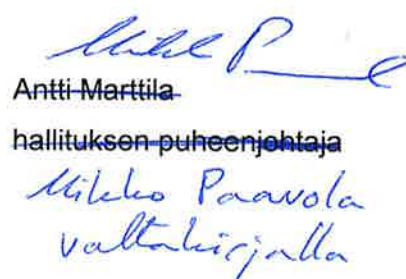 Antti Marttila
hallituksen puheenjohtaja
Mikko Paavola
valtakirjalla